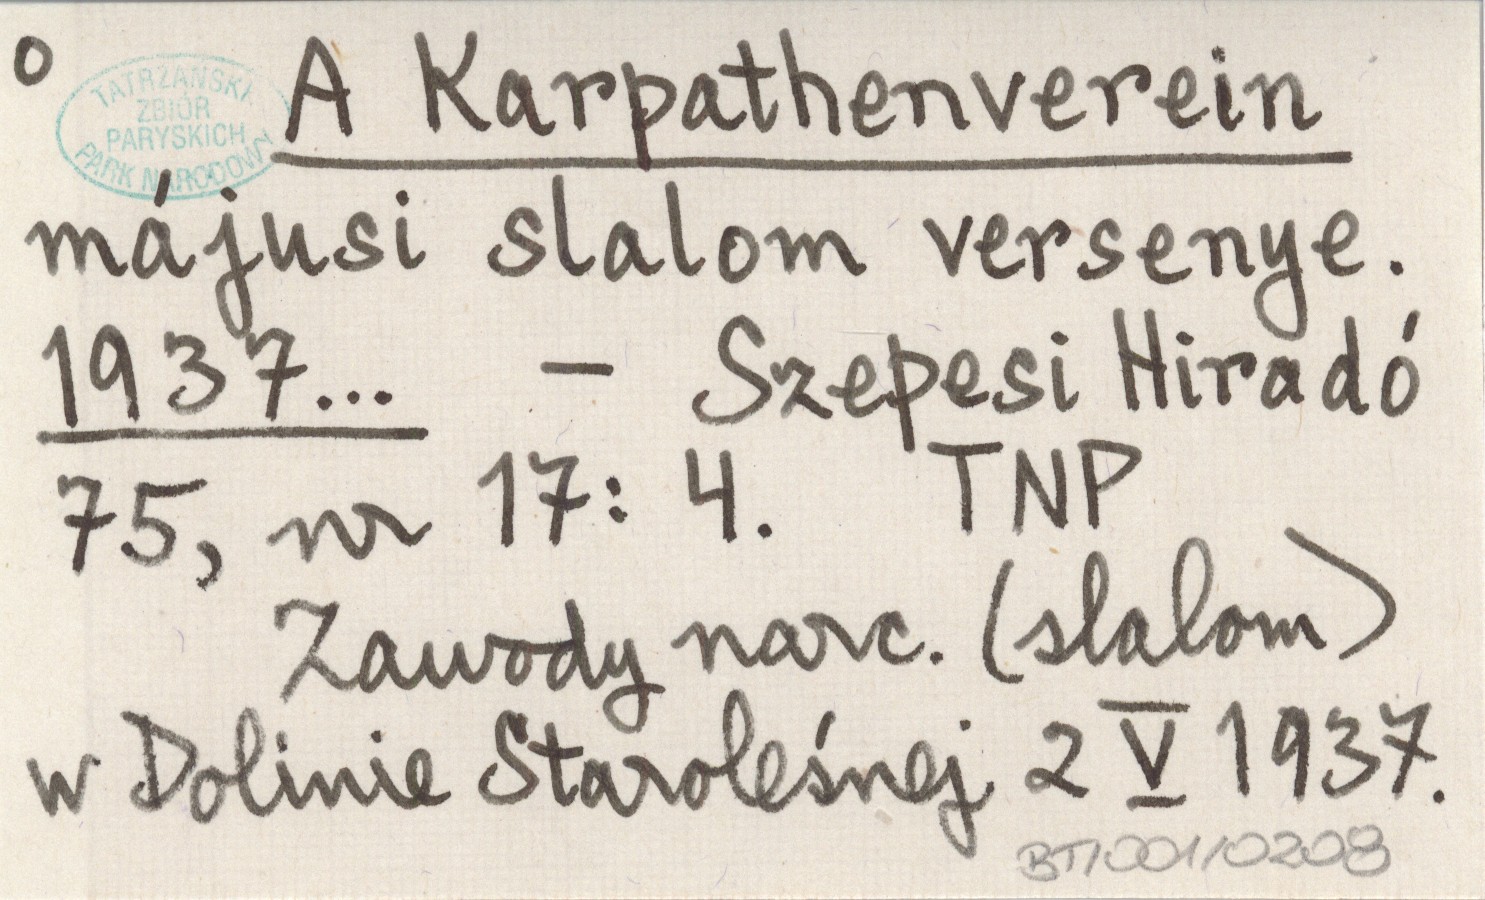 o
TATRZAŃSKI
ZBIÓR
PARYSKICH
PARK NARODOWY
A Karpathenverein
májusi slalom versenye.
1937... – Szepesi Hiradó
75, nr 17: 4. TNP
Zawody narc. (slalom)
w Dolinie Staroleśnej 2 V 1937.
BT/001/0208